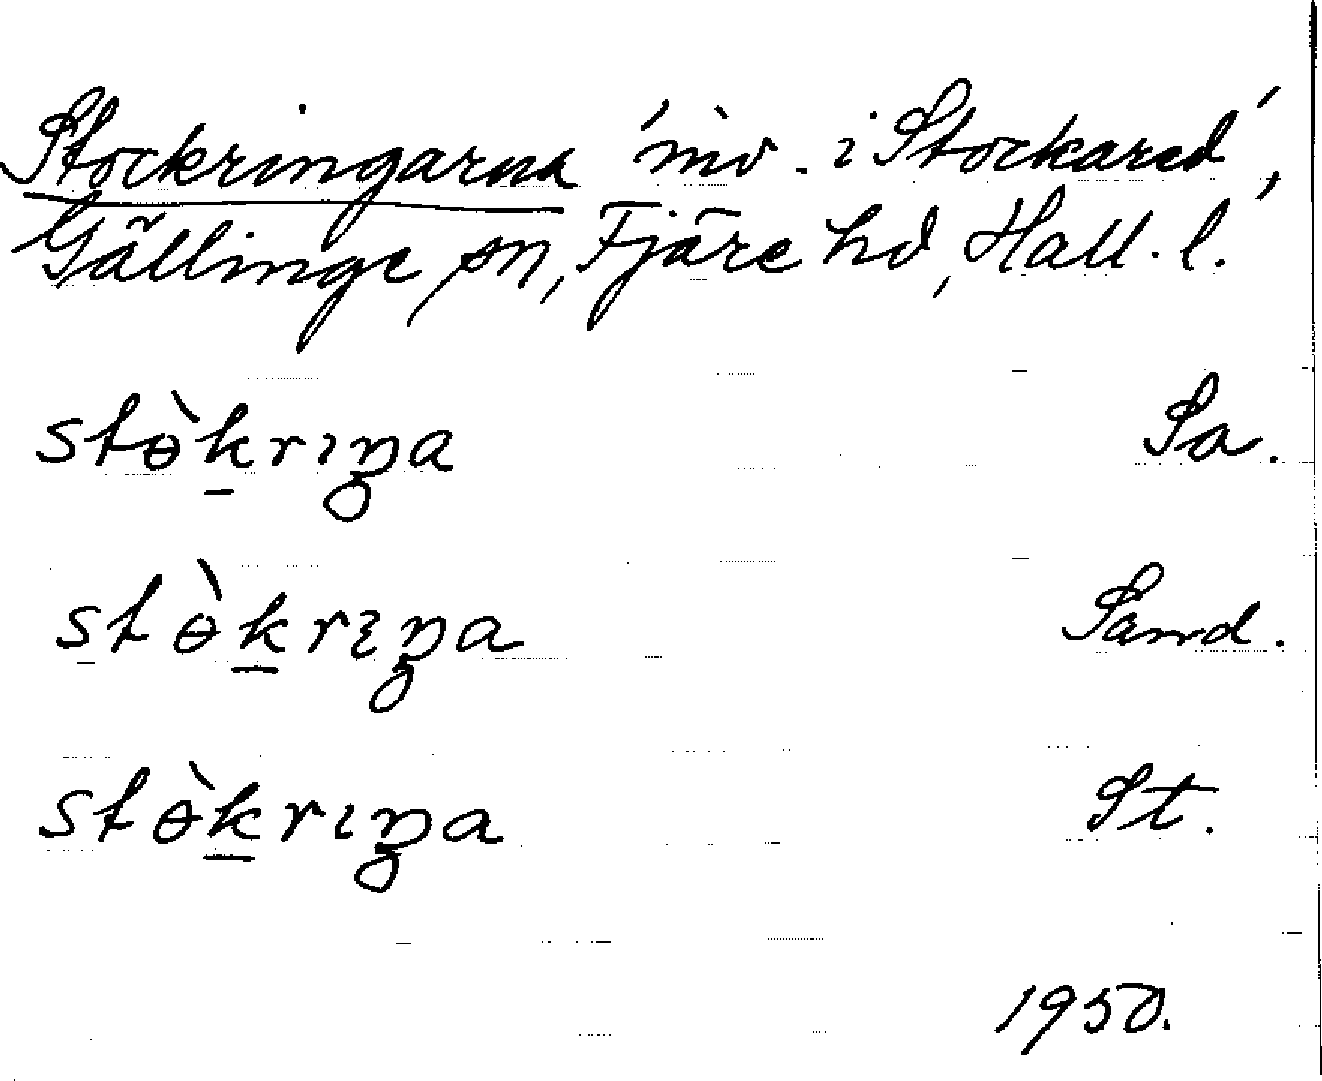 Stockringarna 'inv. i Stockared',
Gällinge sn, Fjäre hd, Hall. l.
stɵ̀krıŋa Sa.
stɵ̀krıŋa Sand.
stɵ̀krıŋa St.
1950.